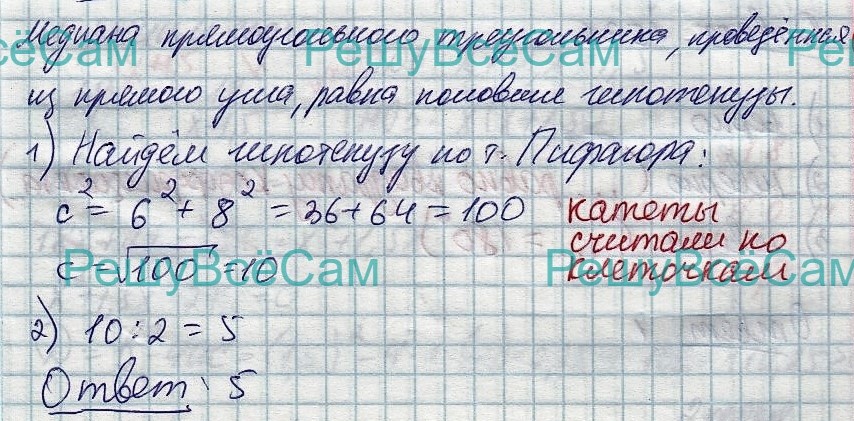 Медиана прямоугольного треугольника, проведённая
из прямого угла, равна половине гипотенузы.
1) Найдём гипотенузу по т. Пифагора:
c² = 6² + 8² = 36 + 64 = 100
катеты
считали по
клеточкам
c = √100 = 10
2) 10 : 2 = 5
Ответ: 5
РешуВсёСам
РешуВсёСам
РешуВсёСам
РешуВсёСам